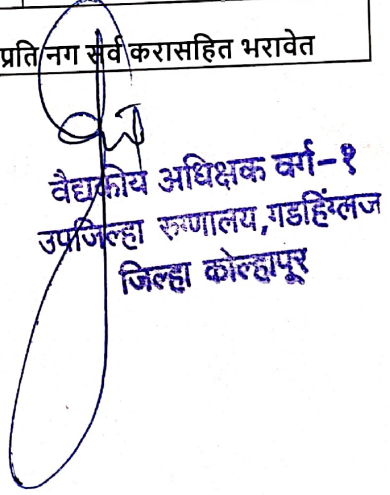 प्रति नग सर्व करासहित भरावेत
वैद्यकीय अधिक्षक वर्ग-१
उपजिल्हा रुग्णालय,गडहिंग्लज
जिल्हा कोल्हापूर